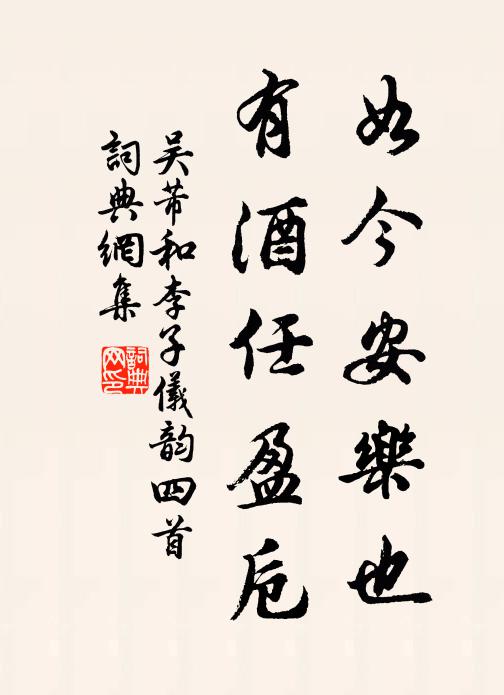 如今安樂也
有酒任盈卮
吴芾和李子儀韵四首
詞典網集
詞典
网印